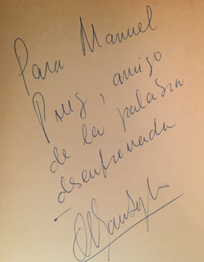 Para Manuel
Puig, amigo
de la palabra
desenfrenada